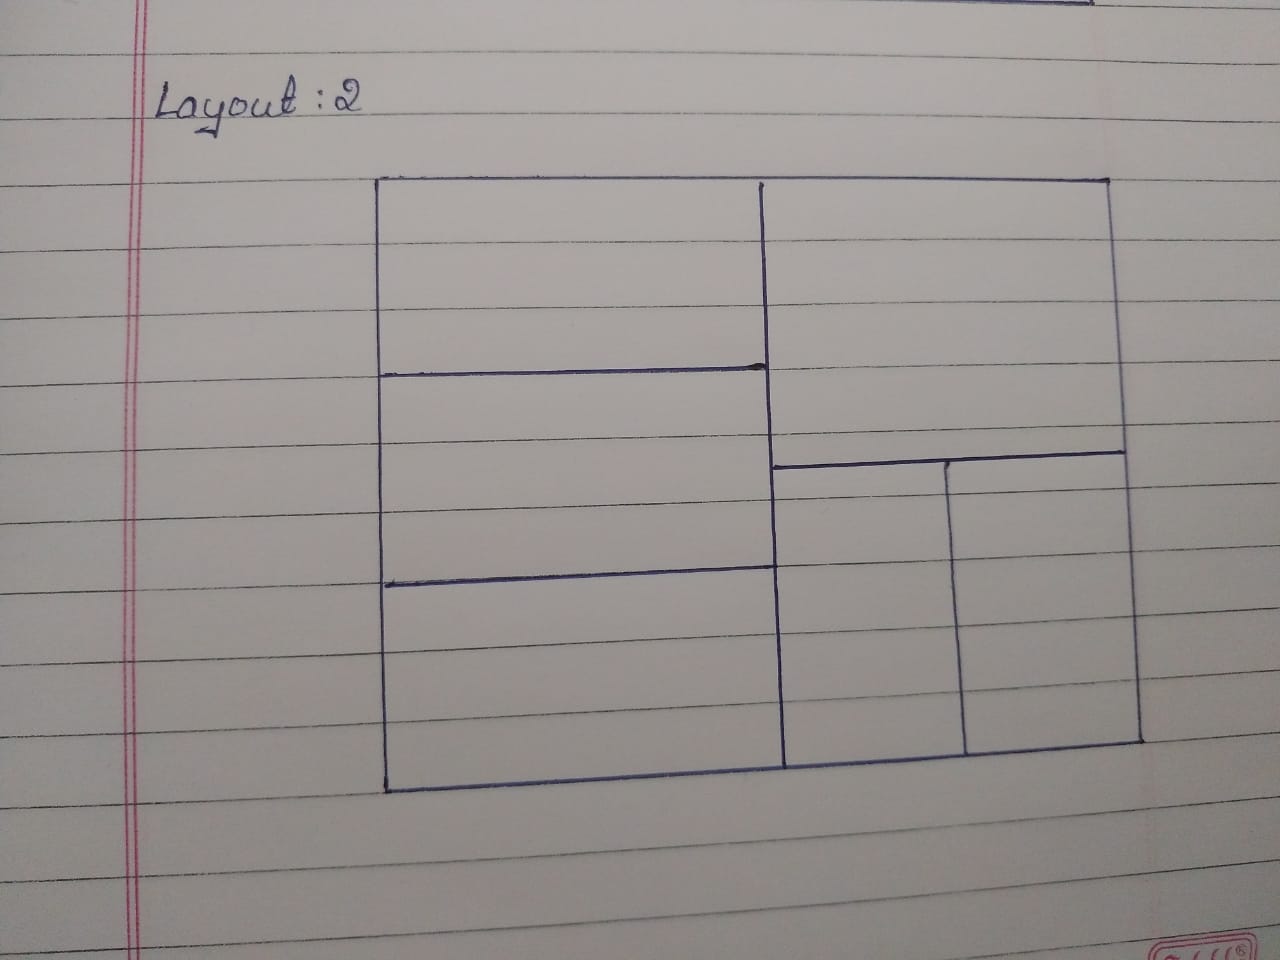 Layout : 2